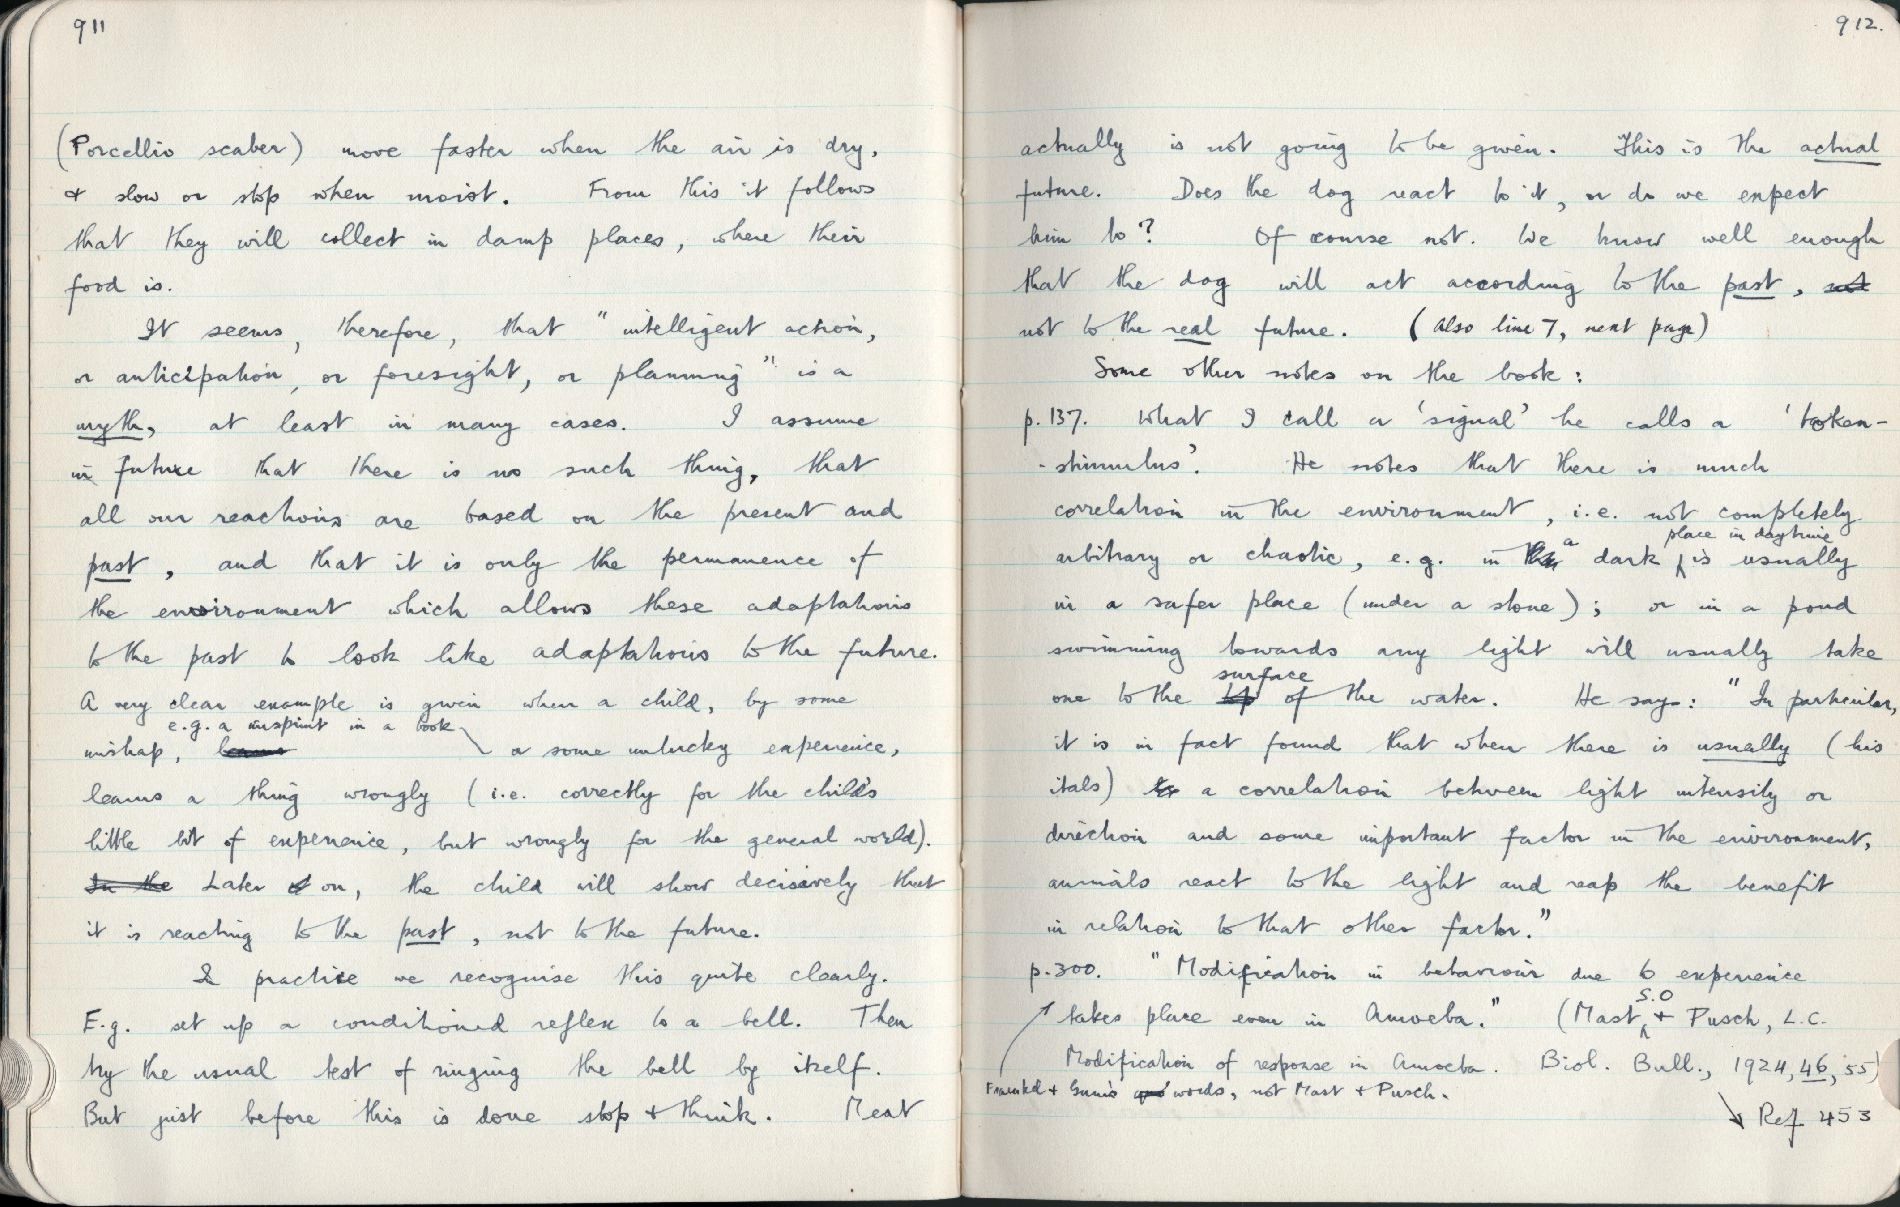 911
(Porcellio scaber) move faster when the air is dry,
& slow or stop when moist. From this it follows
that they will collect in damp places, where their
food is.
It seems, therefore, that "intelligent action,
or anticipation, or foresight, or planning" is a
myth, at least in many cases. I assume
in future that there is no such thing, that
all our reactions are based on the present and
past, and that it is only the permanence of
the environment which allows these adaptations
to the past to look like adaptations to the future.
A very clear example is given when a child, by some
e.g. a misprint in a book
mishap, learns or some unlucky experience,
learns a thing wrongly (i.e. correctly for the child's
little bit of experience, but wrongly for the general world).
In the Later on, the child will show decisively that
it is reacting to the past, not to the future.
I practice we recognise this quite clearly.
E.g. set up a conditioned reflex to a bell. Then
try the usual test of ringing the bell by itself.
But just before this is done stop & think. Meat
912.
actually is not going to be given. This is the actual
future. Does the dog react to it, or do we expect
him to? Of course not. We know well enough
that the dog will act according to the past, not
not to the real future. (Also line 7, next page)
Some other notes on the book:
p.137. What I call a 'signal' he calls a 'token-
-stimulus'. He notes that there is much
correlation in the environment, i.e. not completely
place in daytime
arbitrary or chaotic, e.g. in a dark is usually
in a safer place (under a stone); or in a pond
swimming towards any light will usually take
surface
one to the top of the water. He says: "In particular,
it is in fact found that when there is usually (his
itals) a correlation between light intensity or
direction and some important factor in the environment,
animals react to the light and reap the benefit
in relation to that other factor."
p.300. "Modification in behaviour due to experience
S.O
takes place even in Amoeba." (Mast, & Pusch, L.C.
Modification of response in Amoeba. Biol. Bull., 1924, 46, 55)
Fraenkel & Gunn's words, not Mast & Pusch.
Ref 453